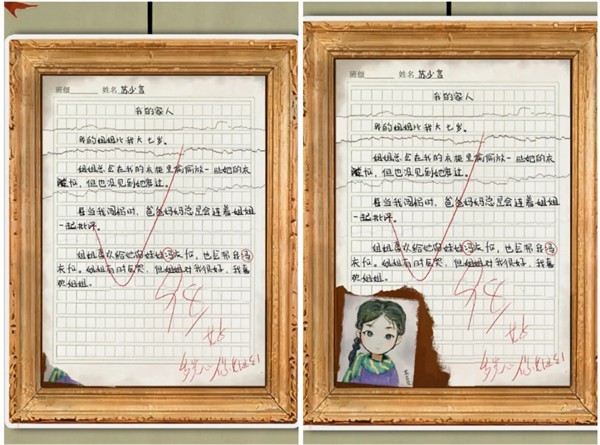 班级 姓名 苏少言
我的家人
我的姐姐比我大七岁。
姐姐总会在我的衣柜里偷偷放一些她的衣
服,但也没见到她穿过。
每当我闯祸时,爸爸妈妈总是会连着姐姐
一起批评。
姐姐喜欢给她 衣服,也会帮
衣服。姐姐有时古怪,但姐姐对我很好,我喜
欢姐姐。
98
班级 姓名 苏少言
我的家人
我的姐姐比我大七岁。
姐姐总会在我的衣柜里偷偷放一些她的衣
服,但也没见到她穿过。
每当我闯祸时,爸爸妈妈总是会连着姐姐
一起批评。
姐姐喜欢给她 衣服,也会帮
衣服。姐姐有时古怪,但姐姐对我很好,我喜
欢姐姐。
98